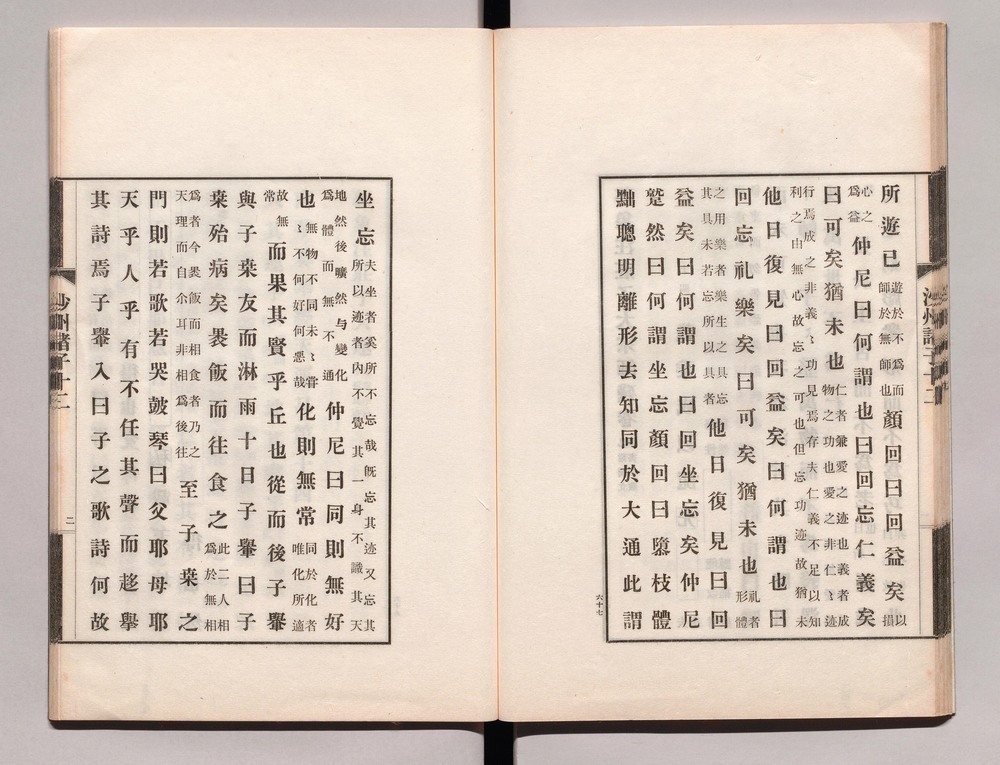 所遊已遊於不為而師於無師也顏回曰回益矣以損
心之為益仲尼曰何謂也曰回忘仁義矣
曰可矣猶未也仁者兼愛之迹也義者成物之功也愛之非仁〻迹
行焉成之非義〻功見焉存夫仁義不足以知利之由無心故忘之可也但忘功迹故猶未
他日復見曰回益矣曰何謂也曰
回忘礼樂矣曰可矣猶未也礼者形體
之用樂者樂生之具忘其具未若忘所以具者他日復見曰回
益矣曰何謂也曰回坐忘矣仲尼
蹵然曰何謂坐忘顏回曰墮枝體
黜聰明離形去知同於大通此謂
六十七
坐忘夫坐者奚所不忘哉旣忘其迹又忘其所以迹者內不覺其一身不識其天
地然後曠然与變化為體而無不通仲尼曰同則無好
也無物不同未〻甞〻不何好何悪哉化則無常同於化者唯化所適
故無常而果其賢乎丘也從而後子轝
與子桒友而淋雨十日子轝曰子
桒殆病矣褁飯而往食之此二人相為於無相
為者今褁飯而相食者乃之天理而自尒耳非相為後往至子桒之
門則若歌若哭皷琴曰父耶母耶
天乎人乎有不任其聲而趍擧
其詩焉子轝入曰子之歌詩何故
沙州諸子十二
二